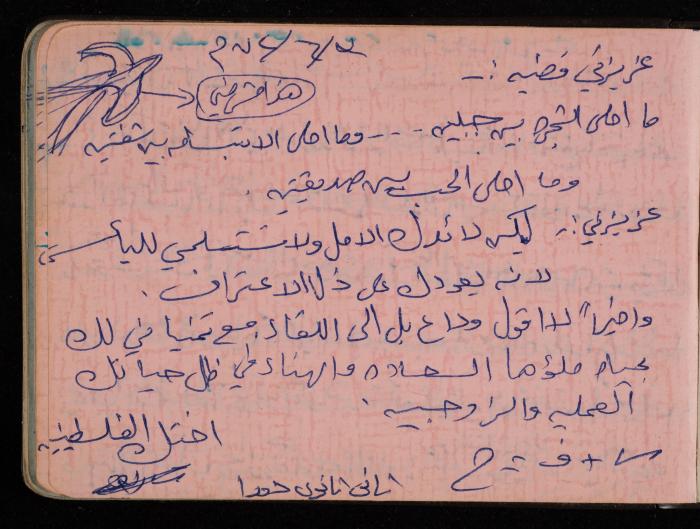 عزيزتي فضيه :ـ
هذا قرضي
ما احلى الشجرة بين جبلين --- وما احلى الابتسامة بين شفتين
وما احلى الحب بين صديقتين .
عزيزتي :ـ ليكن رائدك الامل ولا تستسلمي لليأس
لانه يعودك على ذل الاعتراف .
واخيراً لا اقول وداع بل الى اللقاء مع تمنياتي لك
بحياه ملؤها السعاده والهناء في ظل حياتك
العمليه والزوجيه .
اختك الفلسطينيه
س + ف = ح
الثاني الثانوي